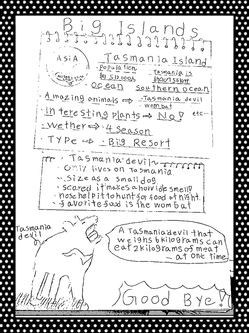 Big Islands
ASiA
Tasmania Island
Population
Tasmania is
ocean
southern ocean
Amazing animals → Tasmania devil
Interesting plants → No! etc
Wether → 4 Season
TYPE → Big Resort
Tasmania devil
Only lives on Tasmania
Size as a small dog
scared it makes a horride smell
nose help it to hunt for food at night
favorite food is the wombat
Tasmania
devil
A Tasmania devil that
weighs 6 kilograms can
eat 2 kilograms of meat
at one time
Good Bye!